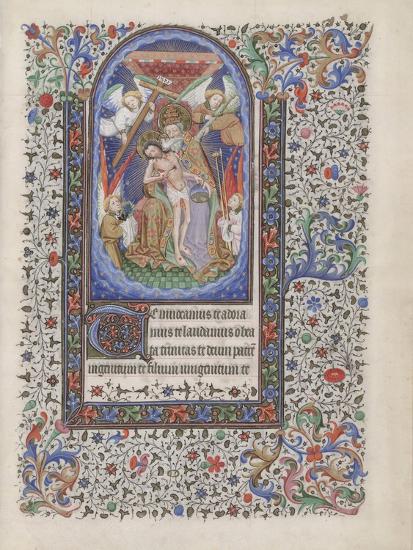 INRI
Te inuocamus te adora
mus te laudamus o bea
ta trinitas Te deum patrē
ingenitum te filium unigenitum te